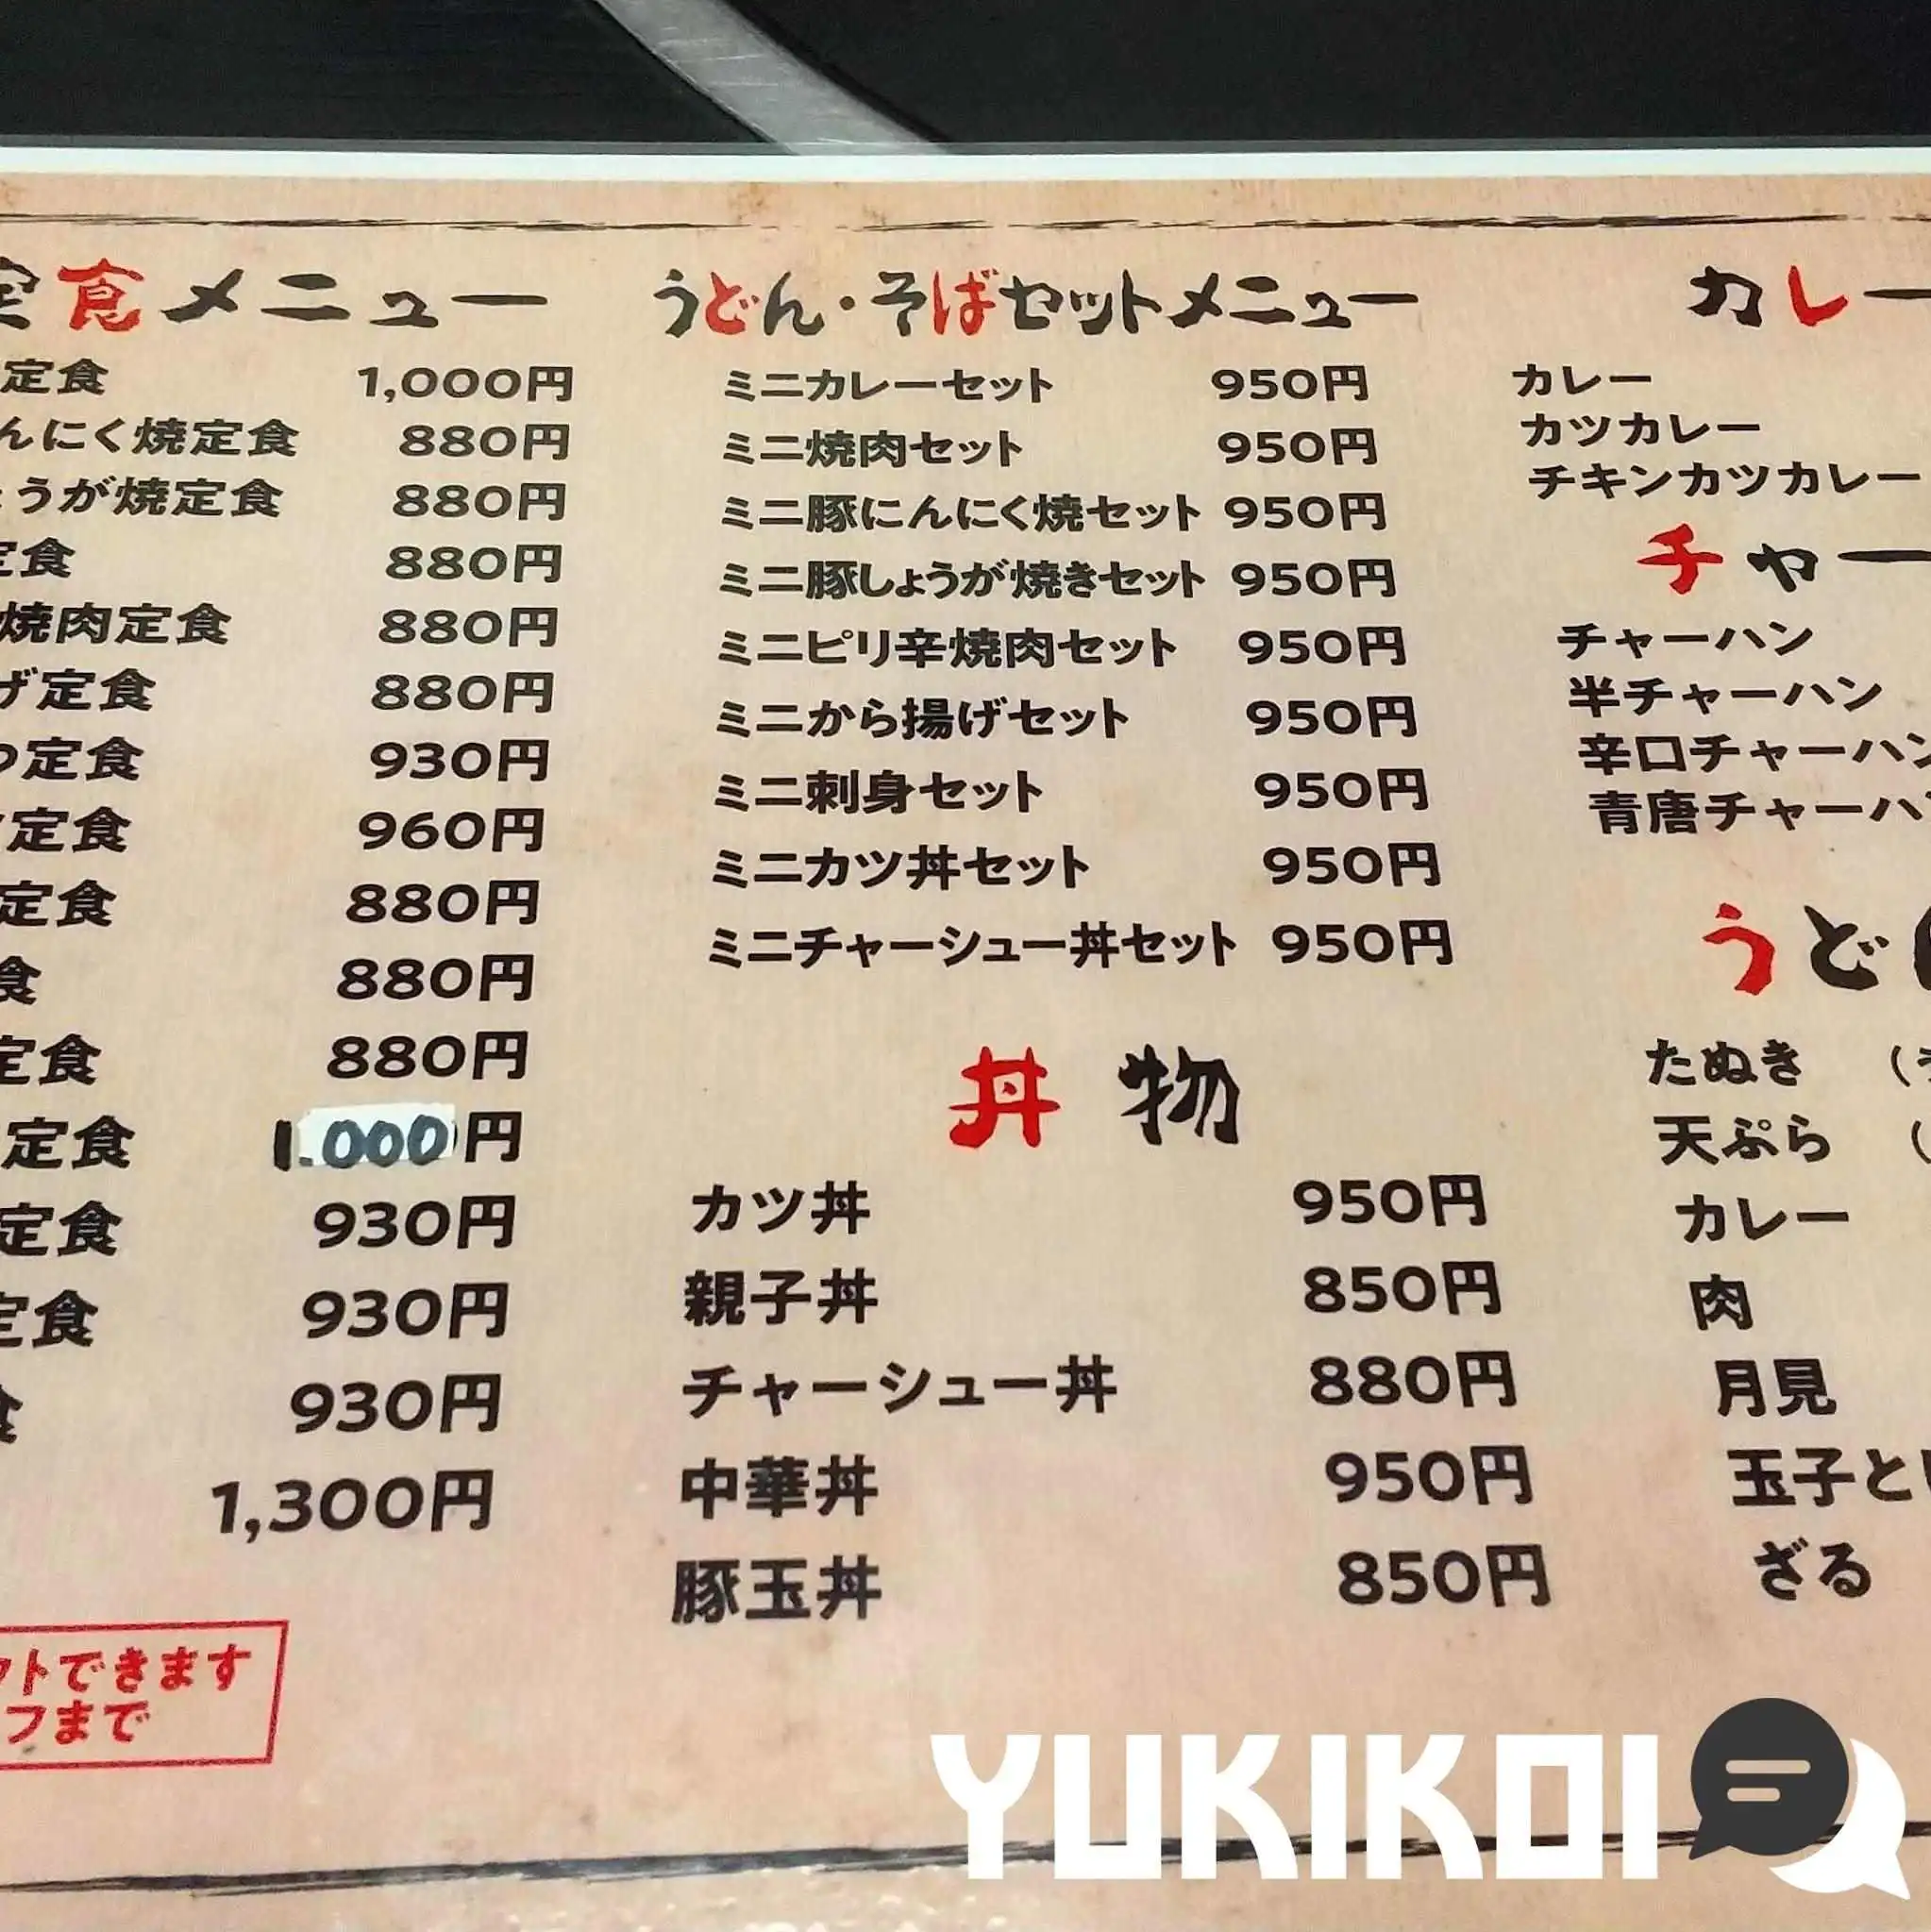 定食メニュー
定食 1,000円
んにく焼定食 880円
ょうが焼定食 880円
定食 880円
焼肉定食 880円
げ定食 880円
つ定食 930円
定食 960円
定食 880円
食 880円
定食 880円
定食 1.000円
定食 930円
定食 930円
食 930円
1,300円
ウトできます
フまで
うどん・そばセットメニュー
ミニカレーセット 950円
ミニ焼肉セット 950円
ミニ豚にんにく焼セット 950円
ミニ豚しょうが焼きセット 950円
ミニピリ辛焼肉セット 950円
ミニから揚げセット 950円
ミニ刺身セット 950円
ミニカツ丼セット 950円
ミニチャーシュー丼セット 950円
丼物
カツ丼 950円
親子丼 850円
チャーシュー丼 880円
中華丼 950円
豚玉丼 850円
カレー
カレー
カツカレー
チキンカツカレー
チャー
チャーハン
半チャーハン
辛口チャーハン
青唐チャーハン
うどん
たぬき
天ぷら
カレー
肉
月見
玉子とじ
ざる
YUKIKOI